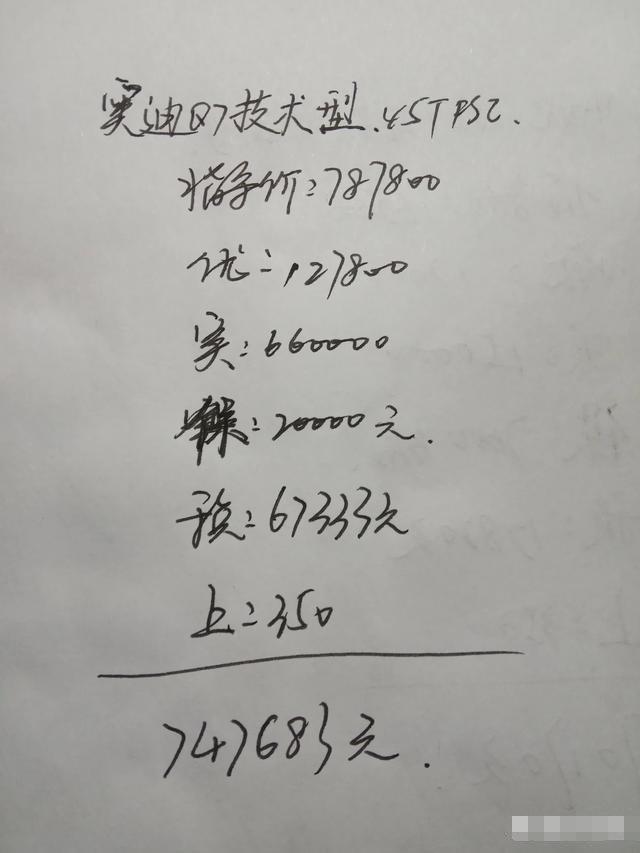 奥迪Q7技术型.45TFSI.
指导价:787800
优:127800
实:660000
保:20000元.
税:67333元
上:350
747683元.